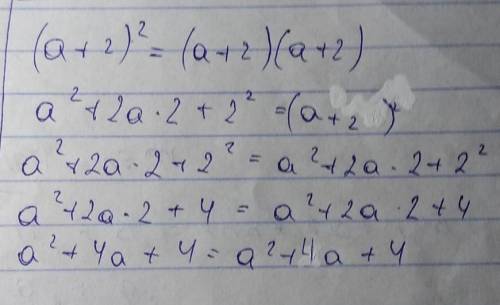 (a+2)² = (a+2)(a+2)
a²+2a·2+2² = (a+2)²
a²+2a·2+2² = a²+2a·2+2²
a²+2a·2+4 = a²+2a·2+4
a²+4a+4 = a²+4a+4